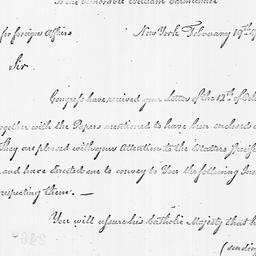 To the Honorable William Carmichael
for foreign Affairs New York February 19th
Sir
Congress have received your Letter of the 12th of
together with the Papers mentioned to have been enclosed
They are pleased with your Attention to the Matters specif
and have directed me to convey to You the following Ins
respecting them. —
You will assure his Catholic Majesty that
(sending